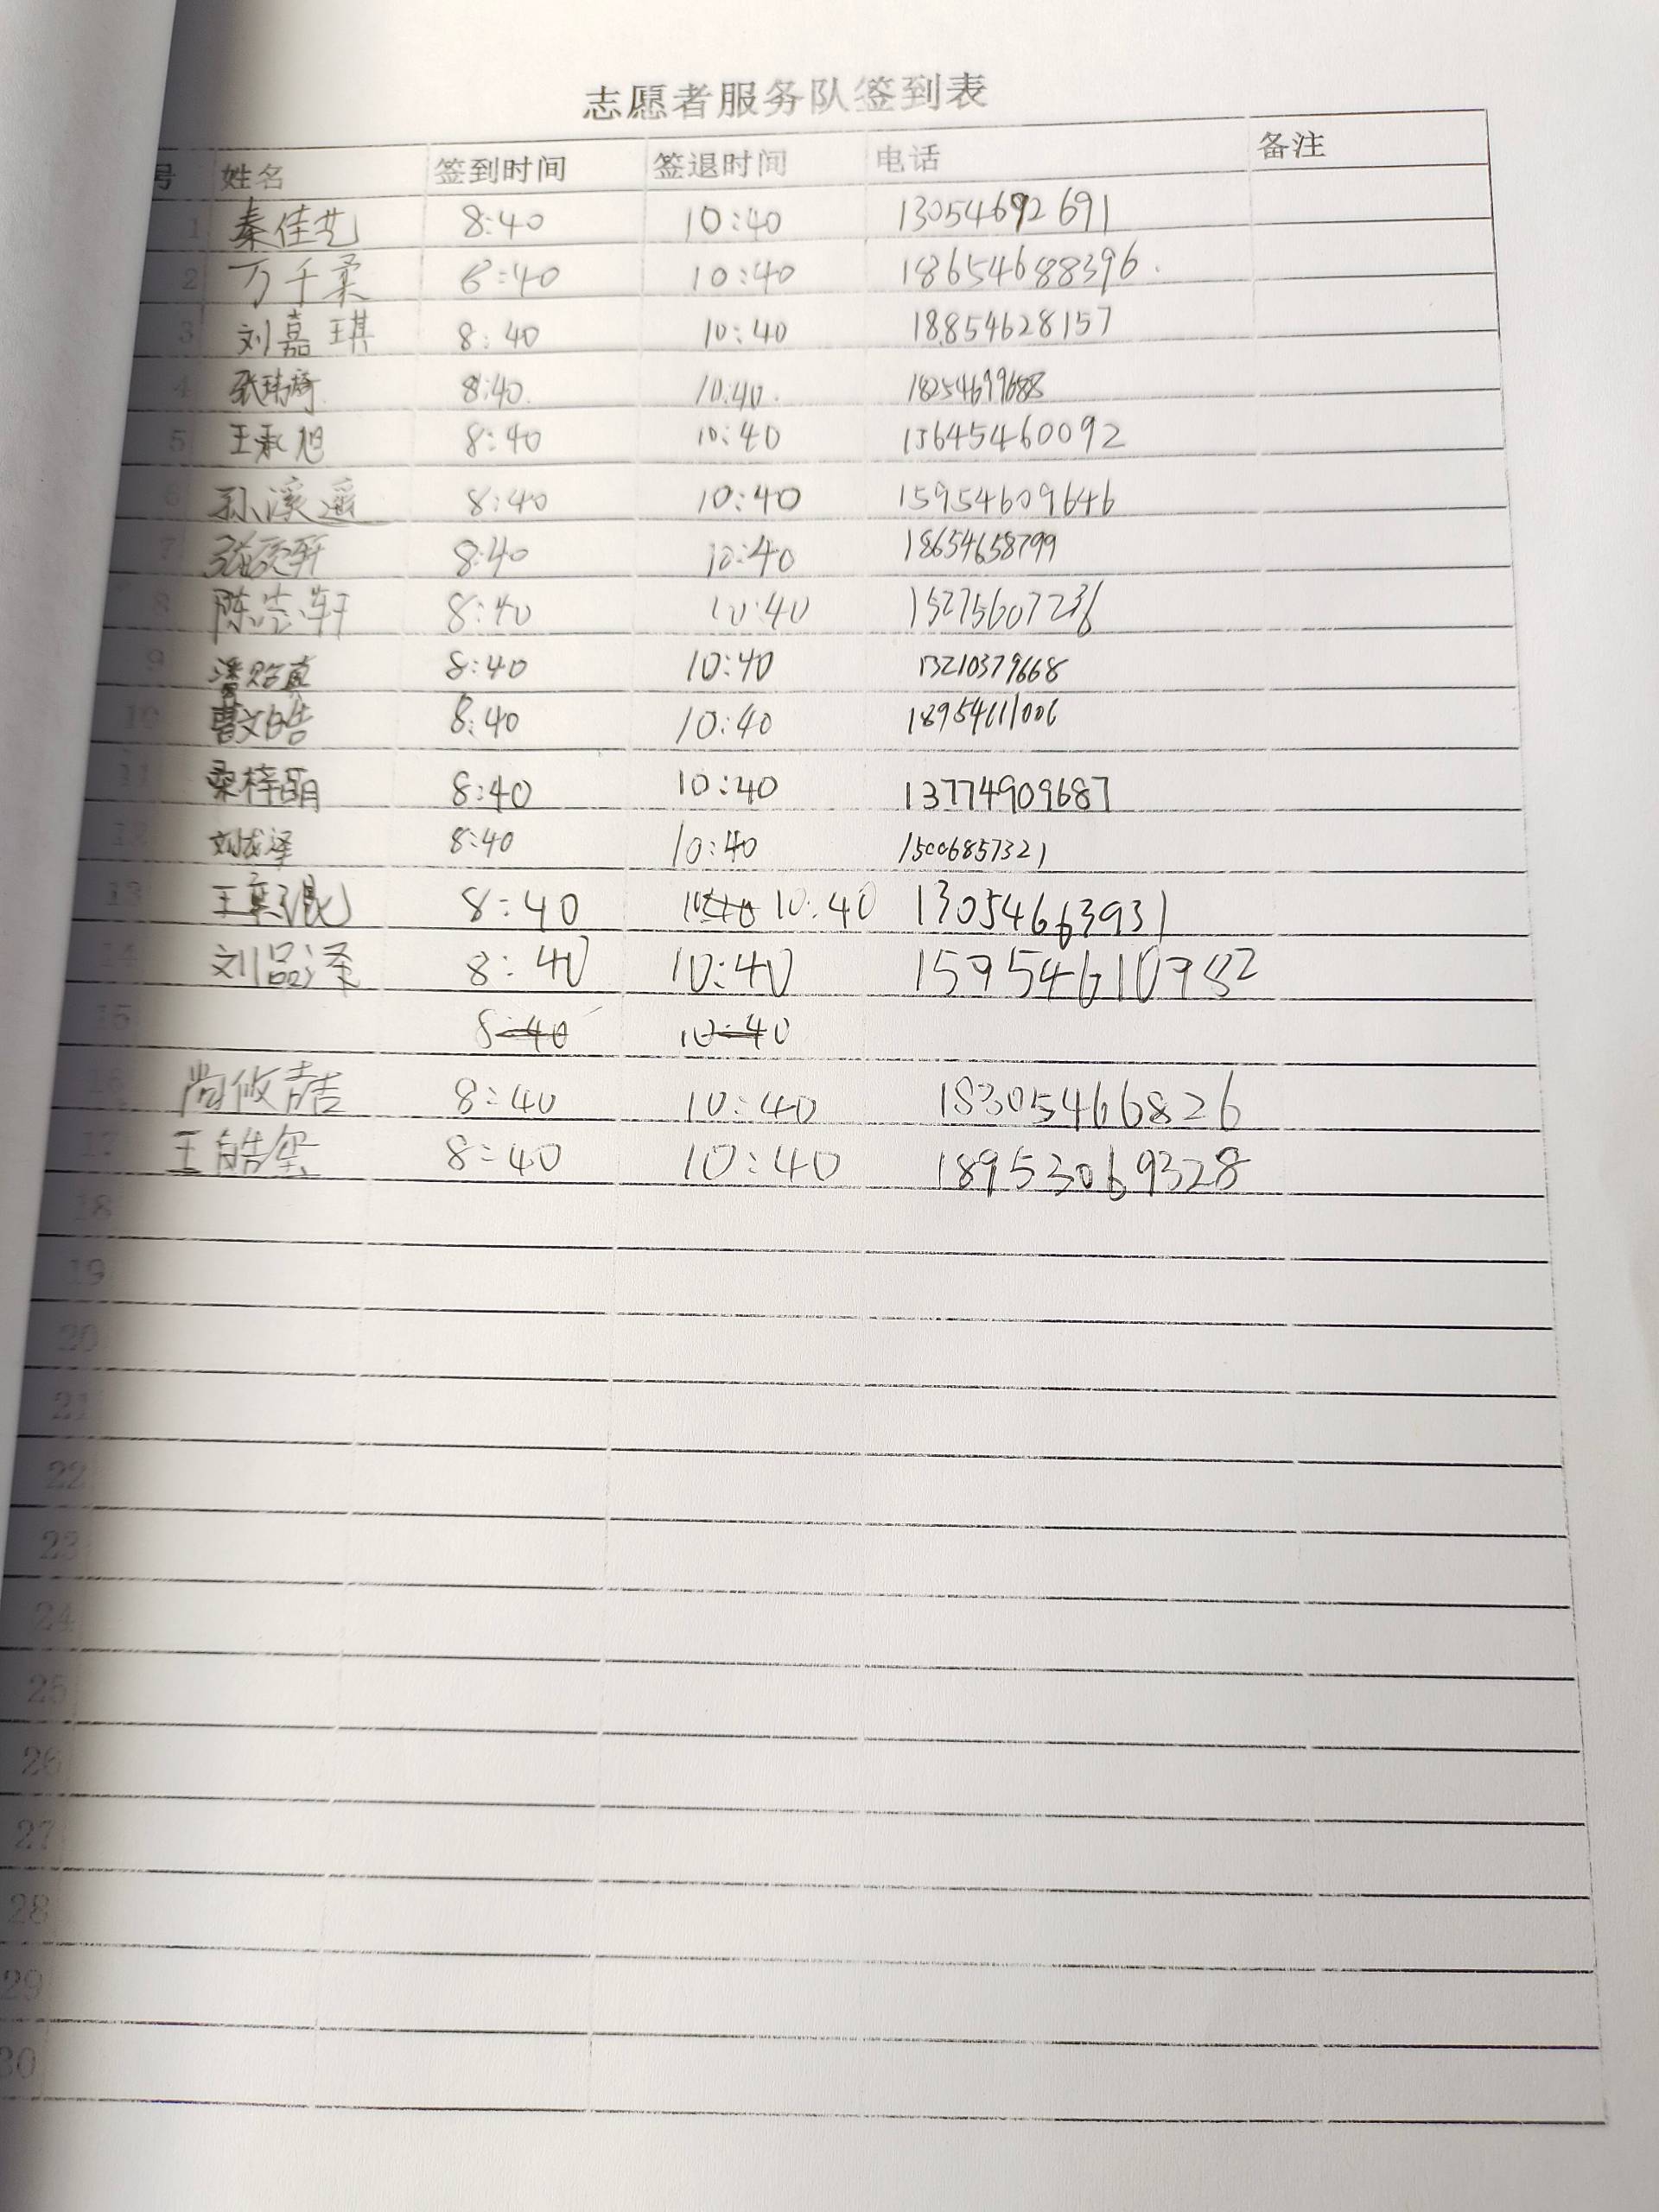 志愿者服务队签到表
号 姓名 签到时间 签退时间 电话 备注
1 秦佳艺 8:40 10:40 13054692691
2 万千柔 8:40 10:40 18654688396
3 刘嘉琪 8:40 10:40 18854628157
4 张玮琦 8:40 10:40 18254699688
5 王承旭 8:40 10:40 13645460092
6 孙溪遥 8:40 10:40 15954609646
7 8:40 10:40 18654658799
8 陈浩轩 8:40 10:40 15275607236
9 潘贻真 8:40 10:40 13210379668
10 曹文皓 8:40 10:40 18954611006
11 桑梓萌 8:40 10:40 13774909687
12 刘成泽 8:40 10:40 15006857321
13 王奕琨 8:40 10:40 10:40 13054663931
14 刘品泽 8:40 10:40 15954610952
15 8:40 10:40
16 尚攸喆 8:40 10:40 18305466826
17 王皓玺 8:40 10:40 18953069328
18
19
20
21
22
23
24
25
26
27
28
29
30